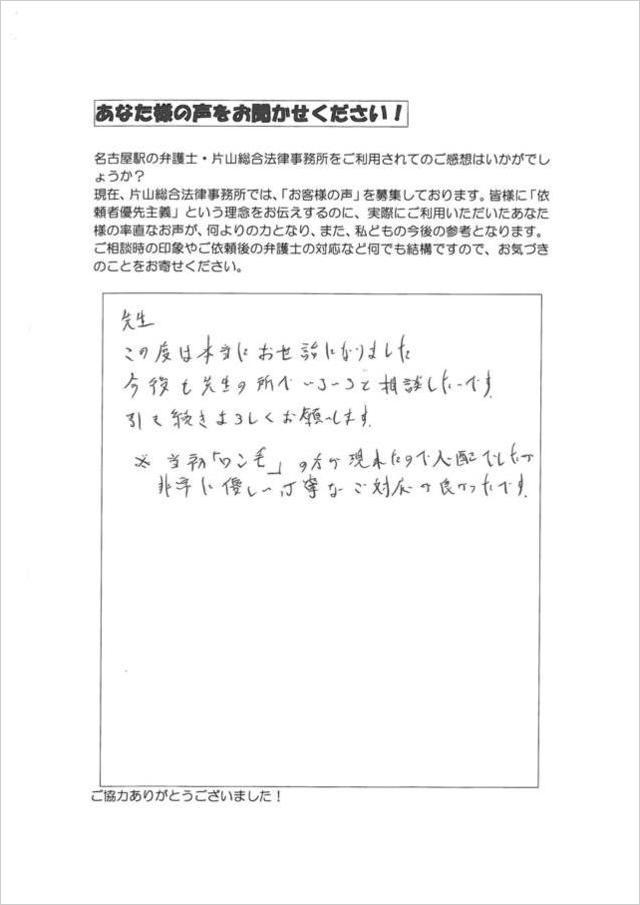 あなた様の声をお聞かせください！
名古屋駅の弁護士・片山総合法律事務所をご利用されてのご感想はいかがでし
ょうか？
現在、片山総合法律事務所では、「お客様の声」を募集しております。皆様に「依
頼者優先主義」という理念をお伝えするのに、実際にご利用いただいたあなた
様の率直なお声が、何よりの力となり、また、私どもの今後の参考となります。
ご相談時の印象やご依頼後の弁護士の対応など何でも結構ですので、お気づき
のことをお寄せください。
先生
この度は本当にお世話になりました
今後も先生の所でいろいろと相談したいです
引き続きよろしくお願いします.
※ 当初「ロン毛」の方が現れたので心配でしたが
非常に優しい丁寧なご対応が良かったです.
ご協力ありがとうございました！